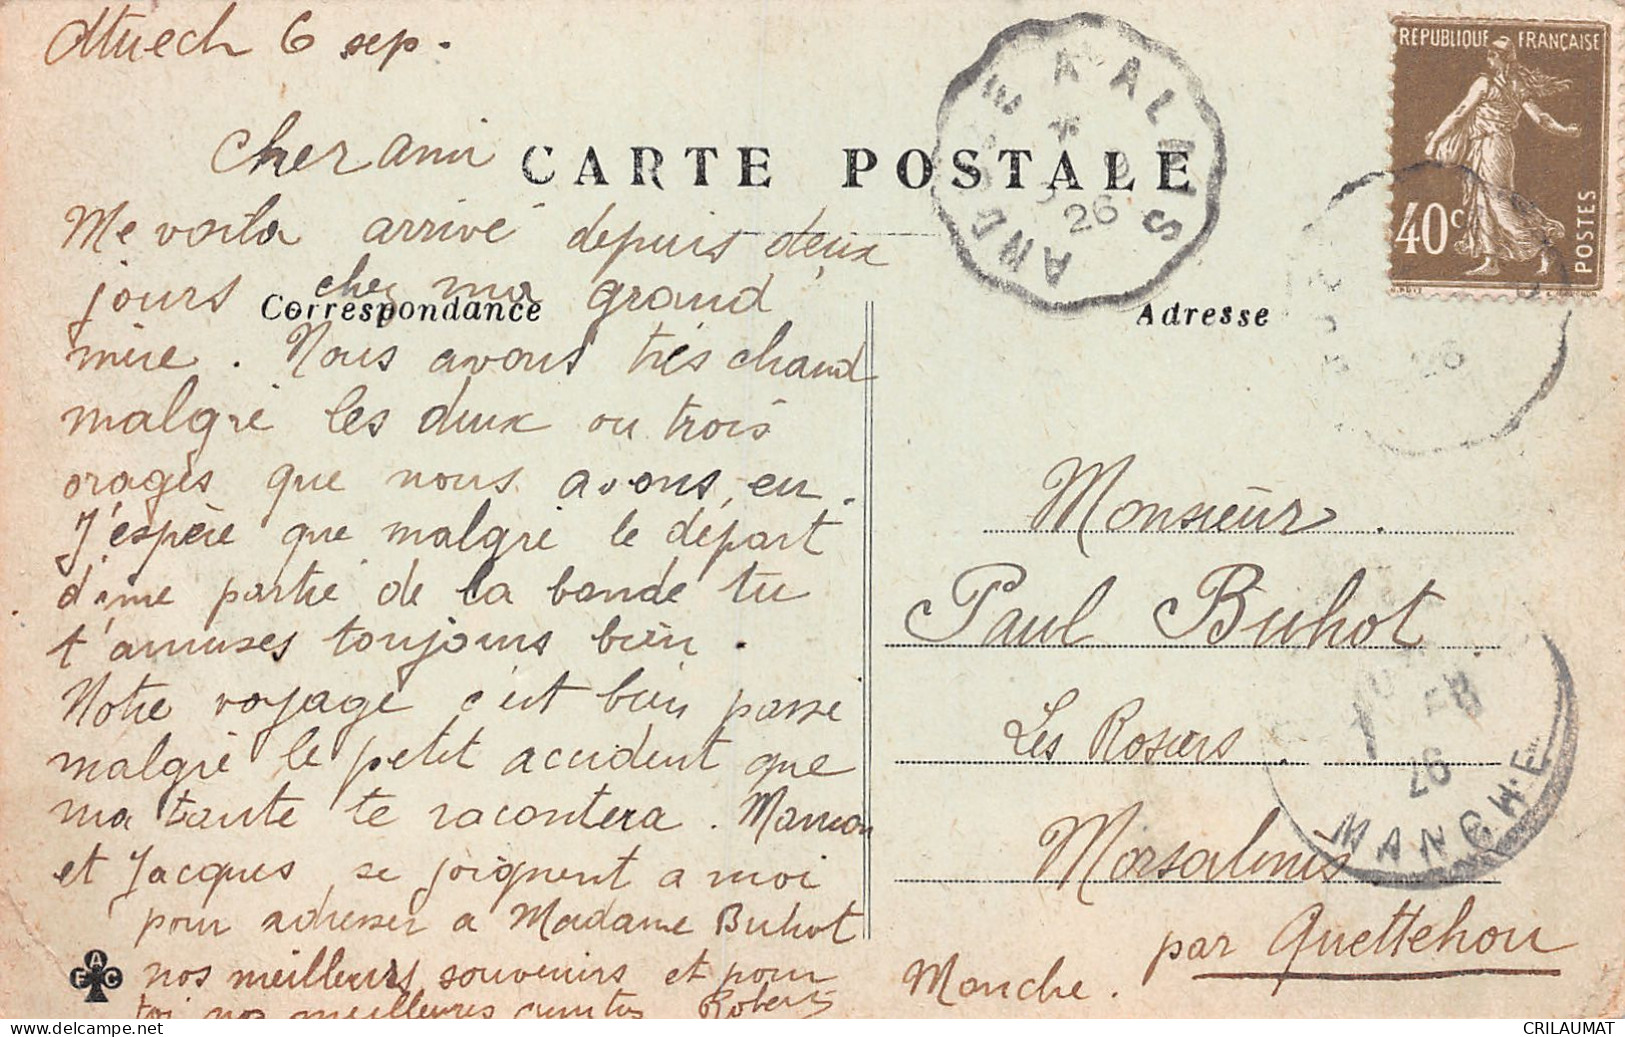 Attuech 6 sep.
Cher ami
CARTE POSTALE
Me voila arrivé depuis deux
jours chez ma grand
Correspondance
mère. Nous avons très chaud
malgré les deux ou trois
orages que nous avons eu.
J'espère que malgré le départ
d'une partie de la bande tu
t'amuses toujours bien.
Notre voyage c'est bien passé
malgré le petit accident que
ma tante te racontera. Maman
et Jacques se joignent a moi
pour adresser a Madame Buhot
nos meilleurs souvenirs et pour
toi nos meilleures amitiés Robert
A
F C
A ALAIS
26
REPUBLIQUE FRANÇAISE
40c
POSTES
Adresse
26
Monsieur
Paul Buhot
Les Rosiers
Morsalines
par Quettehou
Manche.
26
MANCHE
CRILAUMAT